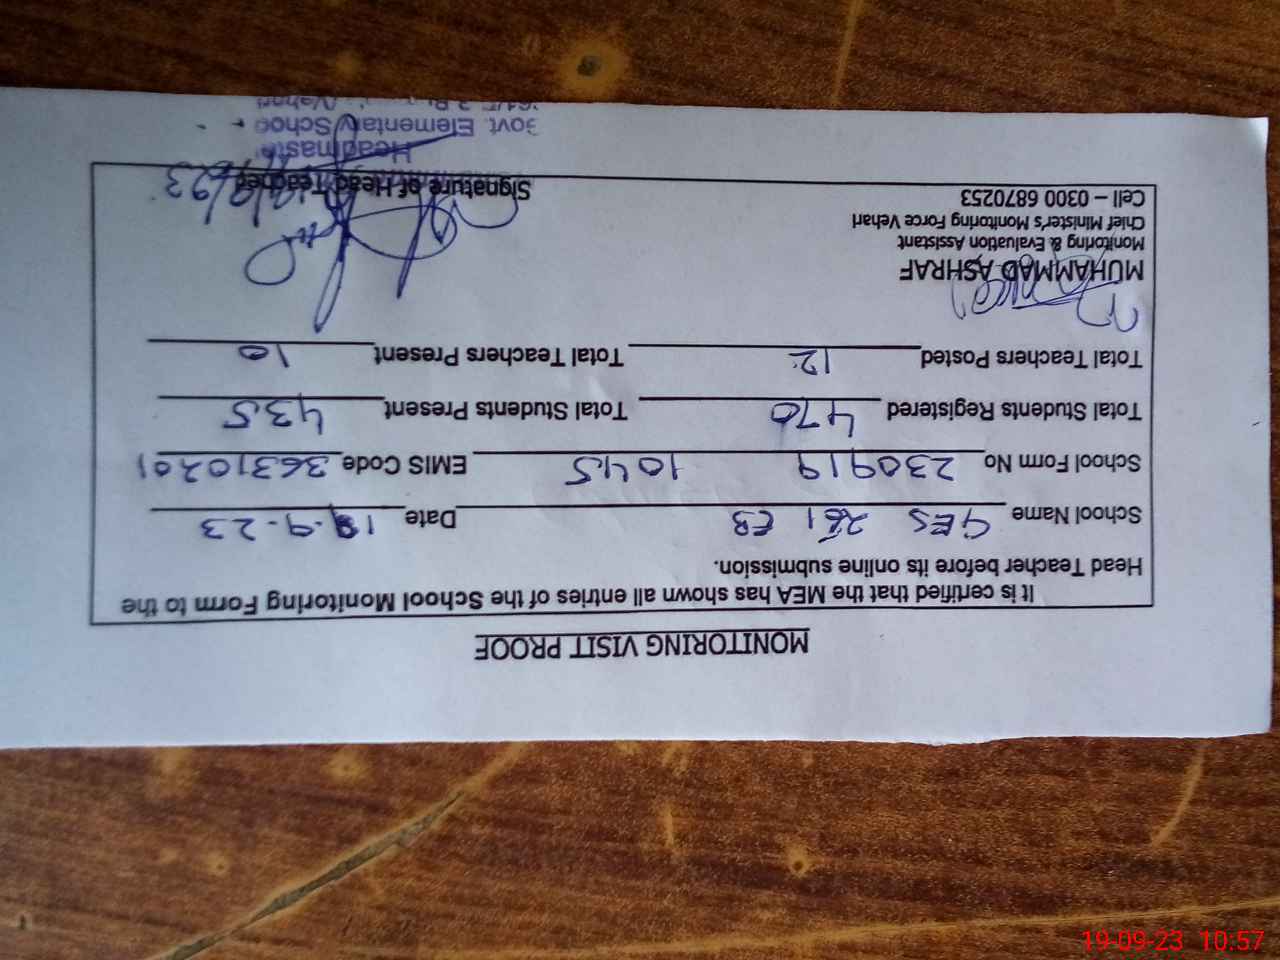 MONITORING VISIT PROOF
It is certified that the MEA has shown all entries of the School Monitoring Form to the
Head Teacher before its online submission.
School Name GES 261 EB Date 19-9-23
School Form No 230919 1045 EMIS Code 36310201
Total Students Registered 470 Total Students Present 435
Total Teachers Posted 12 Total Teachers Present 10
MUHAMMAD ASHRAF
Monitoring & Evaluation Assistant
Chief Minister's Monitoring Force Vehari
Cell – 0300 6870253
Signature of Head Teacher
Headmaste
Govt. Elementary Schoo
19-09-23 10:57